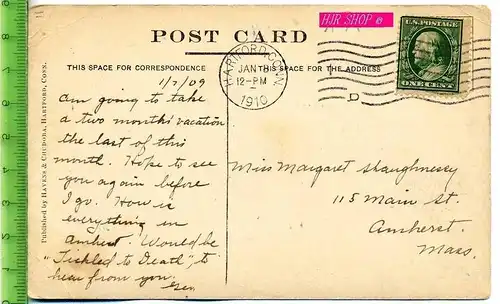 POST CARD
HJR SHOP ©
U.S. POSTAGE
ONE CENT
HARTFORD, CONN.
JAN
12-PM
1910
D
THIS SPACE FOR CORRESPONDENCE
THIS SPACE FOR THE ADDRESS
1/7/09
Am going to take
a two months' vacation
the last of this
month. Hope to see
you again before
I go. How is
everything in
Amherst. Would be
"Tickled to Death", to
hear from you.
Miss Margaret Shaughnessy
115 Main St.
Amherst
Mass.
Published by Havens & Chudora, Hartford, Conn.